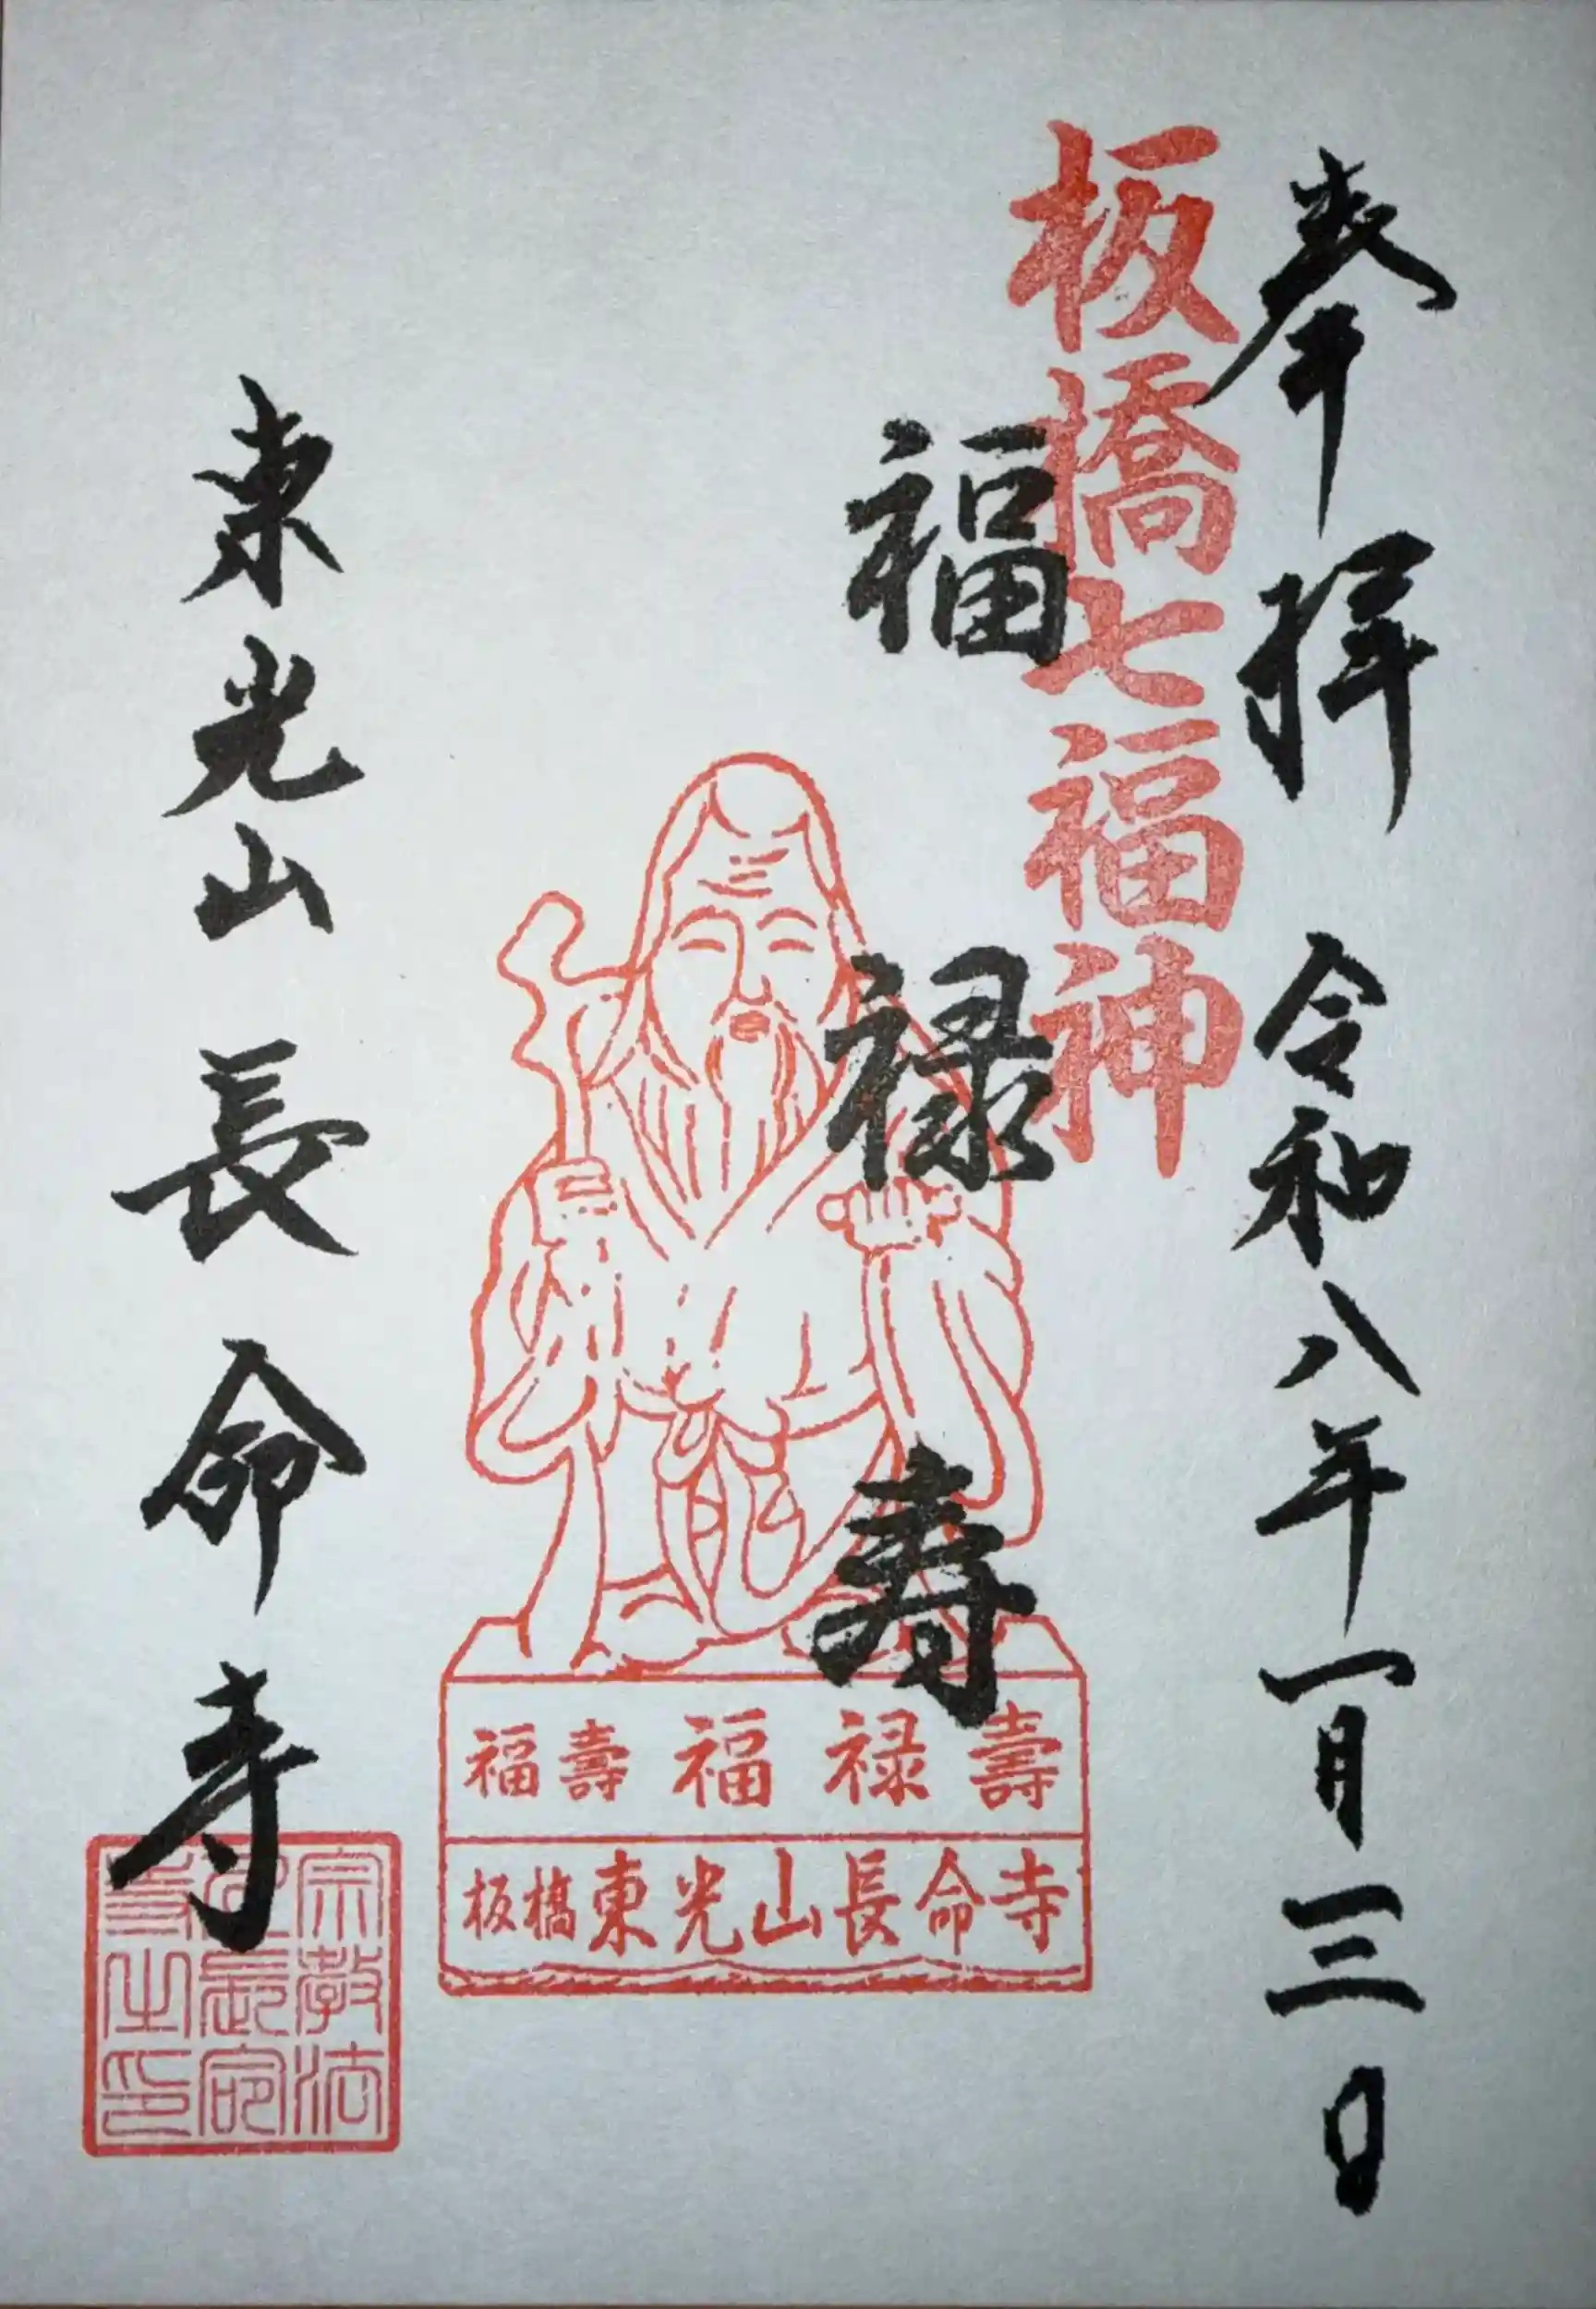 奉拝 令和八年一月三日
板橋七福神
福禄寿
福壽 福禄壽
板橋東光山長命寺
東光山長命寺
宗教法
之印